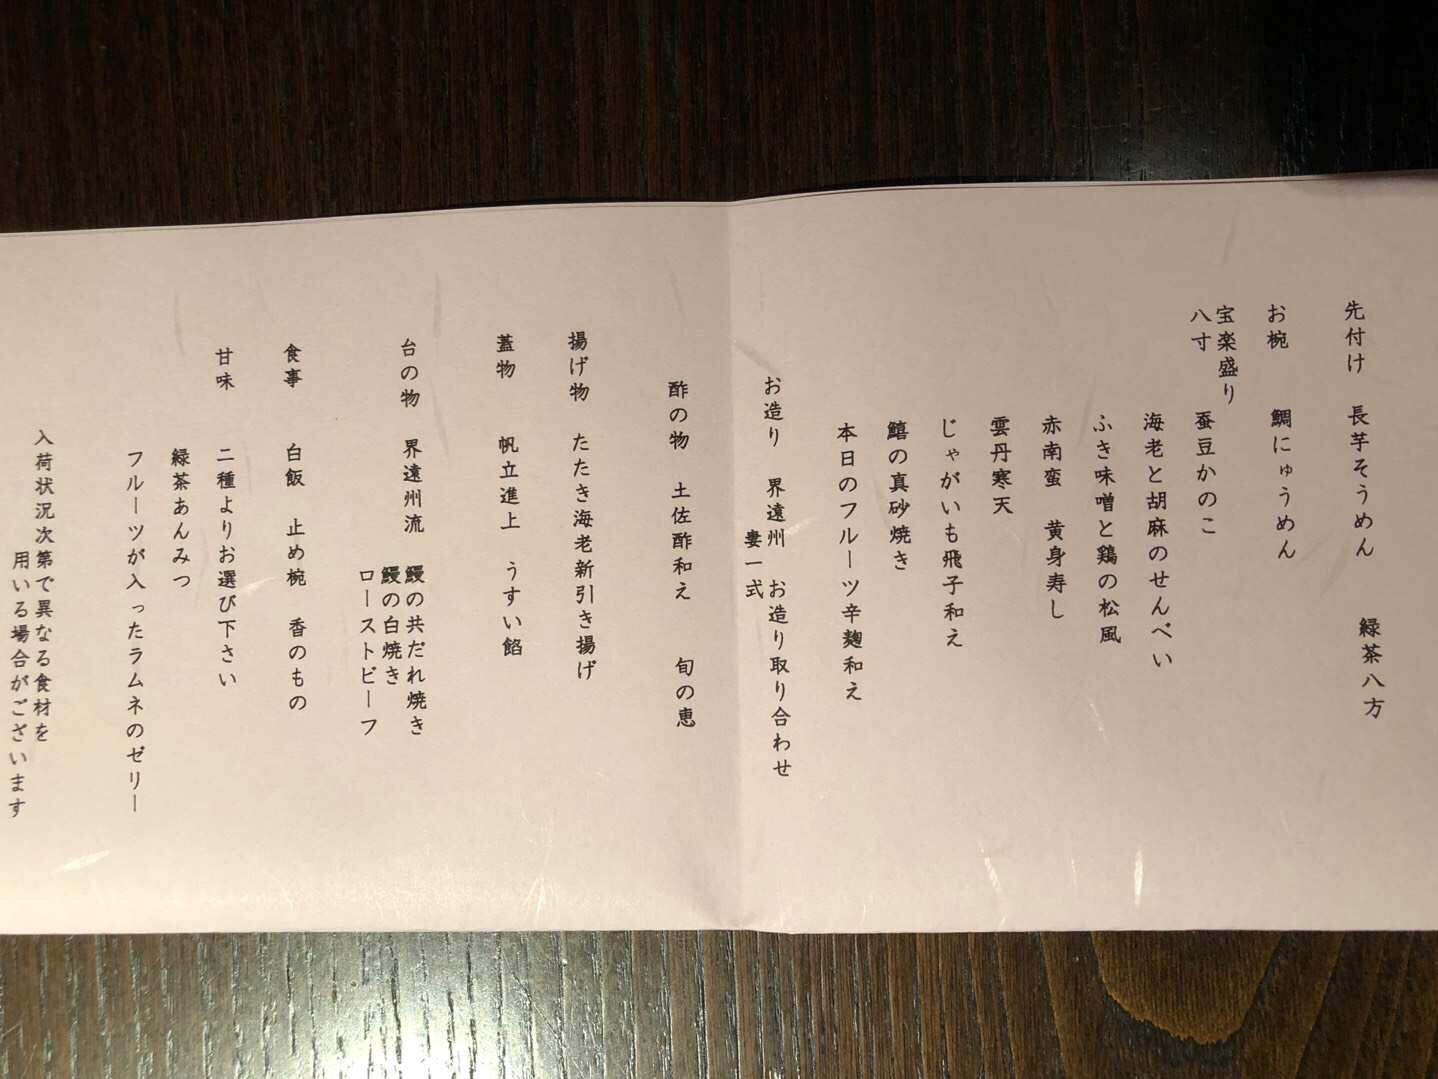 先付け　長芋そうめん　緑茶八方
お椀　鯛にゅうめん
宝楽盛り
八寸　蚕豆かのこ
海老と胡麻のせんべい
ふき味噌と鶏の松風
赤南蛮　黄身寿し
雲丹寒天
じゃがいも飛子和え
鱚の真砂焼き
本日のフルーツ辛麹和え
お造り　界遠州　お造り取り合わせ
妻一式
酢の物　土佐酢和え　旬の恵
揚げ物　たたき海老新引き揚げ
蓋物　帆立進上　うすい餡
台の物　界遠州流　鰻の共だれ焼き
鰻の白焼き
ローストビーフ
食事　白飯　止め椀　香のもの
甘味　二種よりお選び下さい
緑茶あんみつ
フルーツが入ったラムネのゼリー
入荷状況次第で異なる食材を
用いる場合がございます